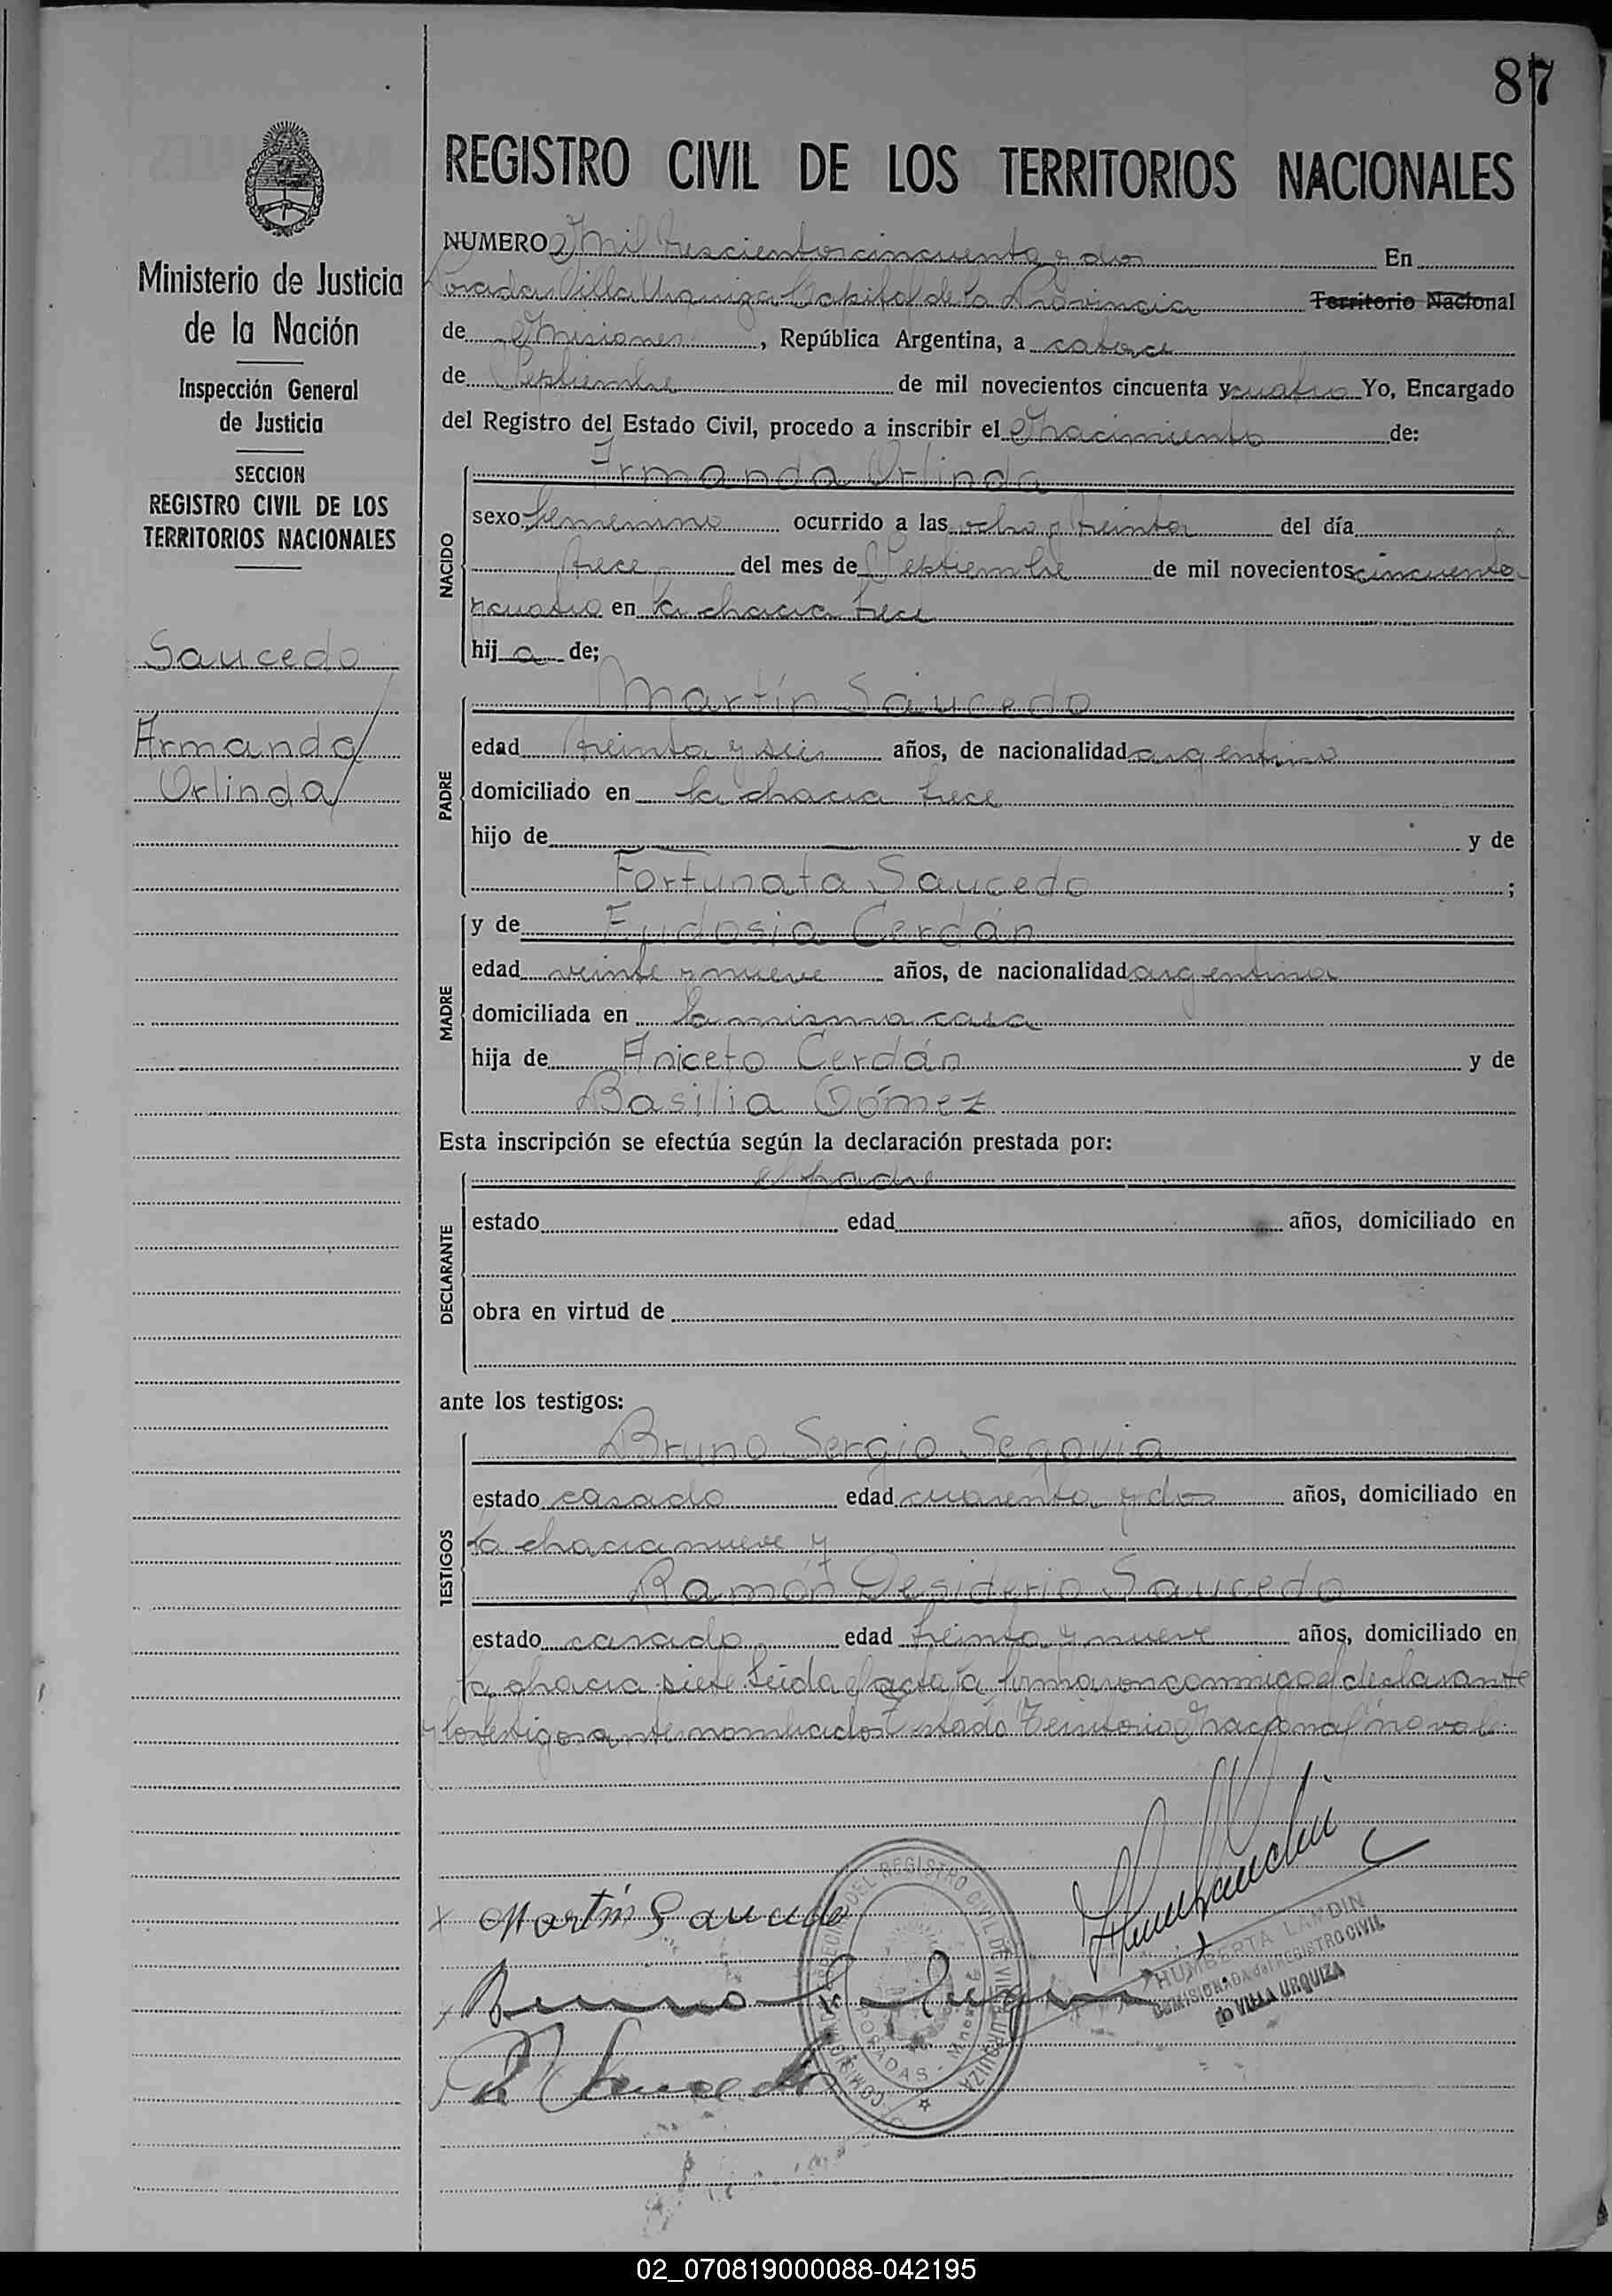 87
REGISTRO CIVIL DE LOS TERRITORIOS NACIONALES
Ministerio de Justicia
de la Nación
Inspección General
de Justicia
SECCION
REGISTRO CIVIL DE LOS
TERRITORIOS NACIONALES
Saucedo
Armanda
Orlinda
NUMERO Mil trescientos cincuenta y dos En
Posadas Villa Urquiza Capital de la Provincia Territorio Nacional
de Misiones, República Argentina, a catorce
de Septiembre de mil novecientos cincuenta y cuatro Yo, Encargado
del Registro del Estado Civil, procedo a inscribir el Nacimiento de:
NACIDO
Armanda Orlinda
sexo femenino ocurrido a las ocho y treinta del día
trece del mes de Septiembre de mil novecientos cincuenta
y cuatro en la chacra trece
hija de;
PADRE
Martín Saucedo
edad treinta y seis años, de nacionalidad argentino
domiciliado en la chacra trece
hijo de y de
Fortunata Saucedo ;
MADRE
y de Eudosia Cerdán
edad veinte y nueve años, de nacionalidad argentina
domiciliada en la misma casa
hija de Aniceto Cerdán y de
Basilia Gómez
Esta inscripción se efectúa según la declaración prestada por:
DECLARANTE
el padre
estado edad años, domiciliado en
obra en virtud de
ante los testigos:
TESTIGOS
Bruno Sergio Segovia
estado casado edad cuarenta y dos años, domiciliado en
la chacra nueve y
Ramón Desiderio Saucedo
estado casado edad treinta y nueve años, domiciliado en
la chacra siete Leida el acta la firmaron conmigo el declarante
y los testigos antes nombrados Testado Territorio Nacional no vale
Martín Saucedo
Bruno S. Segovia
R D Saucedo
COMISIONADA ESPECIAL DEL REGISTRO CIVIL DE VILLA URQUIZA
POSADAS - Mnes
HUMBERTA LANDIN
COMISIONADA del REGISTRO CIVIL
de VILLA URQUIZA
02_070819000088-042195